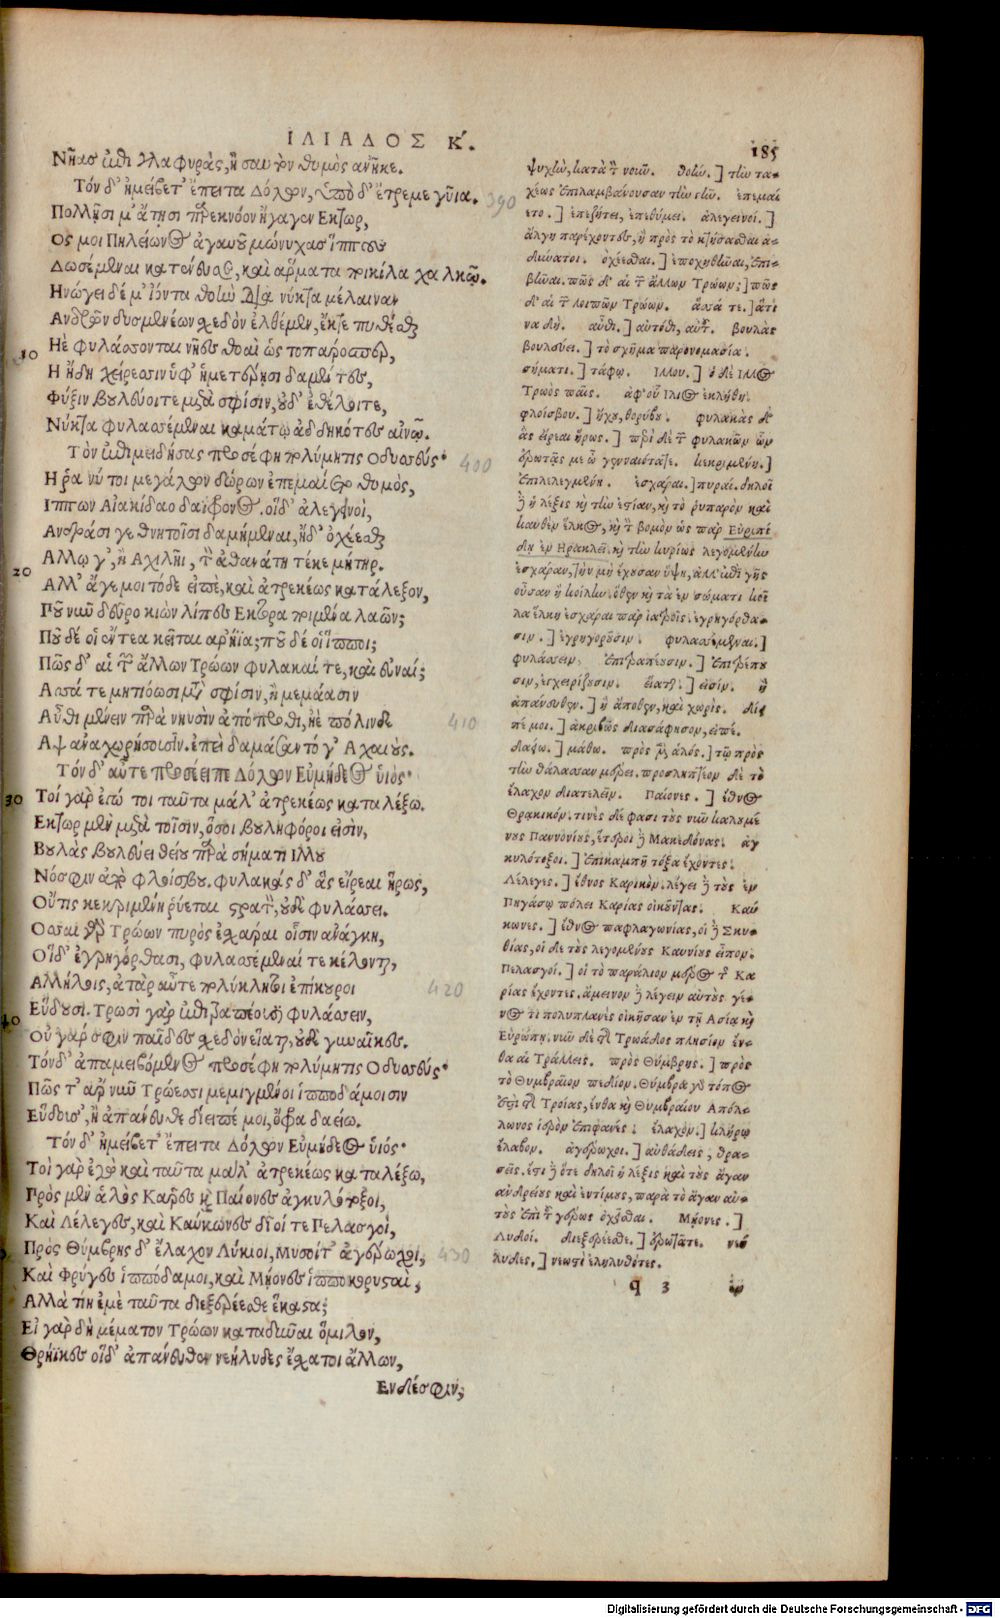 ΙΛΙΑΔΟΣ Κ.
185
Νῆας ἐπὶ γλαφυρὰς, ἢ σαυτὸν θυμὸς ἀνῆκε.
Τὸν δ' ἠμείβετ' ἔπειτα Δόλων, ὑπὸ δ' ἔτρεμε γῦια.
390
Πολλῇσί μ' ἄτησι παρὲκ νόον ἤγαγεν Εκτωρ,
Ος μοι Πηλείωνος ἀγαυοῦ μώνυχας ἵππους
Δωσέμεναι κατένευσε, καὶ ἅρματα ποικίλα χαλκῷ.
Ηνώγει δέ μ' ἰόντα θοὴν διὰ νύκτα μέλαιναν
Ανδρῶν δυσμενέων σχεδὸν ἐλθέμεν, ἔκ τε πυθέσθαι
10
Ηὲ φυλάσσονται νῆες θοαὶ ὡς τοπάροσπερ,
Η ἤδη χείρεσσιν ὑφ' ἡμετέρῃσι δαμέντες,
Φύξιν βουλεύοιτε μετὰ σφίσιν, οὐδ' ἐθέλοιτε,
Νύκτα φυλασσέμεναι καμάτῳ ἀδδηκότες αἰνῷ.
Τὸν ἐπιμειδήσας προσέφη πολύμητις Οδυσσεύς·
400
Η ῥα νύ τοι μεγάλων δώρων ἐπεμαίετο θυμὸς,
Ιππων Αἰακίδαο δαΐφρονος. οἵδ' ἀλεγεινοὶ,
Ανδράσι γε θνητοῖσι δαμήμεναι, ἠδ' ὀχέεσθαι
Αλλῳ γ', ἢ Αχιλῆι, τὸν ἀθανάτη τέκε μήτηρ.
20
Αλλ' ἄγε μοι τόδε εἰπὲ, καὶ ἀτρεκέως κατάλεξον,
Ποῦ νῦν δεῦρο κιὼν λίπες Εκτορα ποιμένα λαῶν;
Ποῦ δέ οἱ ἔντεα κεῖται ἀρήϊα; ποῦ δέ οἱ ἵπποι;
Πῶς δ' αἱ τῶν ἄλλων Τρώων φυλακαί τε, καὶ εὐναί;
Ασσά τε μητιόωσι μετὰ σφίσιν, ἢ μεμάασιν
Αὖθι μένειν παρὰ νηυσὶν ἀπόπροθι, ἠὲ πόλινδε
410
Αψ ἀναχωρήσουσιν. ἐπεὶ δαμάσαντό γ' Αχαιούς.
Τὸν δ' αὖτε προσέειπε Δόλων Εὐμήδεος ὑιός·
30
Τοὶ γὰρ ἐγώ τοι ταῦτα μάλ' ἀτρεκέως καταλέξω.
Εκτωρ μὲν μετὰ τοῖσιν, ὅσοι βουληφόροι εἰσὶν,
Βουλὰς βουλεύει θείου παρὰ σήματι Ιλου
Νόσφιν ἀπὸ φλοίσβου. φυλακάς δ' ἃς εἴρεαι ἥρως,
Οὔτις κεκριμένη ῥύεται στρατὸν, οὐδὲ φυλάσσει.
Οσσαι μὲν Τρώων πυρὸς ἐσχάραι οἷσιν ἀνάγκη,
Οἵδ' ἐγρηγόρθασι, φυλασσέμεναί τε κέλονται,
Αλλήλοις, ἀτὰρ αὖτε πολύκλητοι ἐπίκουροι
420
Εὕδουσι. Τρωσὶ γὰρ ἐπιτραπέουσι φυλάσσειν,
40
Οὐ γάρ σφιν παῖδες σχεδὸν εἵαται, οὐδὲ γυναῖκες.
Τόνδ' ἀπαμειβόμενος προσέφη πολύμητις Οδυσσεύς·
Πῶς τ' ἄρ νῦν Τρώεσσι μεμιγμένοι ἱπποδάμοισιν
Εὕδουσ', ἢ ἀπάνευθε; δίειπέ μοι, ὄφρα δαείω.
Τόν δ' ἠμείβετ' ἔπειτα Δόλων Εὐμήδεος ὑιός·
Τοὶ γὰρ ἐγὼ καὶ ταῦτα μάλ' ἀτρεκέως καταλέξω,
Πρὸς μὲν ἁλὸς Κᾶρες καὶ Παίονες ἀγκυλότοξοι,
Καὶ Λέλεγες, καὶ Καύκωνες δῖοί τε Πελασγοὶ,
Πρὸς Θύμβρης δ' ἔλαχον Λύκιοι, Μυσοίτ' ἀγέρωχοι,
430
Καὶ Φρύγες ἱππόδαμοι, καὶ Μήονες ἱπποκορυσταὶ,
Αλλὰ τίη ἐμὲ ταῦτα διεξερέεσθε ἕκαστα;
Εἰ γὰρ δὴ μέματον Τρώων καταδῦναι ὅμιλον,
Θρήϊκες οἵδ' ἀπάνευθεν νεήλυδες ἔσχατοι ἄλλων,
Εν δέ σφιν;
ψυχὴν, κατὰ τὸν νοῦν. θοήν.] τὴν τα-
χέως ἐπιλαμβάνουσαν τὴν γῆν. ἐπεμαί
ετο.] ἐπεζήτει, ἐπεθύμει. ἀλεγεινοί.]
ἄλγη παρέχοντες, ἢ πρὸς τὸ κτήσασθαι ἀ-
δύνατοι. ὀχέεσθαι.] ἐποχηθῆναι, ἐπι-
βῆναι. πῶς δ' αἱ τῶν ἄλλων Τρώων;] πῶς
δ' αἱ τῶν λοιπῶν Τρώων. ἅσσά τε.] ἅτι
να δή. αὖθι.] αὐτόθι, αὐτοῦ. βουλὰς
βουλεύει.] τὸ σχῆμα παρονομασία.
σήματι.] τάφῳ. Ιλου.] ὁ δὲ Ιλος
Τρωὸς παῖς. ἀφ' οὗ Ιλιος ἐκλήθη.
φλοίσβου.] ἤχου, θορύβου. φυλακὰς δ'
ἃς εἴρεαι ἥρως.] περὶ δὲ τῶν φυλακῶν ὧν
ἐρωτᾷς με ὦ γενναιότατε. κεκριμένη.]
ἐπιλελεγμένη. ἐσχάραι.] πυραί. δηλοῖ
δὲ ἡ λέξις καὶ τὴν ἑστίαν, καὶ τὸ ῥυπαρὸν καὶ
κανθὲν ἕλκος, καὶ τὸν βωμὸν ὡς παρ' Εὐριπί
δῃ ἐν Ηρακλεῖ. καὶ τὴν κυρίως λεγομένην
ἐσχάραν, τὴν μὴ ἔχουσαν ὕψη, ἀλλ' ἐπὶ γῆς
οὖσαν ἢ κοίλην. ὅθεν καὶ τὰ ἐν σώματι κοῖ
λα ἕλκη ἐσχάραι παρ' ἰατροῖς. ἐγρηγόρθα-
σιν.] ἐγρηγοροῦσιν. φυλασσέμεναι.]
φυλάσσειν. ἐπιτραπέουσιν.] ἐπιτρέπου
σιν, ἐγχειρίζουσιν. εἵαται.] εἰσίν. ἢ
ἀπάνευθεν.] ἢ ἄποθεν, καὶ χωρίς. δίει
πέ μοι.] ἀκριβῶς διασάφησον, εἰπέ.
δαείω.] μάθω. πρὸς μὲν ἁλός.] τῷ πρὸς
τὴν θάλασσαν μέρει. προσληπτέον δὲ τὸ
ἔλαχον διατελεῖν. Παίονες.] ἔθνος
Θρακικόν. τινὲς δέ φασι τοὺς νῦν καλουμέ
νους Παννονίους, ἕτεροι δὲ Μακεδόνας. ἀγ
κυλότοξοι.] ἐπικαμπῆ τόξα ἔχοντες.
Λέλεγες.] ἔθνος Καρικὸν. λέγει δὲ τοὺς ἐν
Πηγάσῳ πόλει Καρίας οἰκοῦντας. Καύ
κωνες.] ἔθνος παφλαγωνίας, οἱ δὲ Σκυ-
θίας, οἱ δὲ τοὺς λεγομένους Καυνίους εἶπον.
Πελασγοί.] οἱ τὸ παράλιον μέρος τῶν Κα
ρίας ἔχοντες. ἄμεινον δὲ λέγειν αὐτοὺς γέ-
νος τὶ πολυπλανὲς οἰκῆσαν ἐν τῇ Ασίᾳ καὶ
Εὐρώπῃ. νῦν δὲ τῆς Τρωάδος πλησίον ἔν-
θα αἱ Τράλλεις. πρὸς Θύμβρης.] πρὸς
τὸ Θυμβραῖον πεδίον. Θύμβρα γὰρ τόπος
ἐστὶ τῆς Τροίας, ἔνθα καὶ Θυμβραίου Απόλ-
λωνος ἱερὸν ἐπιφανές. ἔλαχον.] κλήρῳ
ἔλαβον. ἀγέρωχοι.] αὐθάδεις, θρα-
σεῖς. ἔτι δὲ ὅτε δηλοῖ ἡ λέξις καὶ τοὺς ἄγαν
ἀνδρείους καὶ ἐντίμους, παρὰ τὸ ἄγαν αὐ-
τοὺς ἐπὶ τὸ γέρως ὀχεῖσθαι. Μήονες.]
Λυδοί. διεξερέεσθε.] ἐρωτᾶτε. νεή
λυδες.] νεωστὶ ἐληλυθότες.
q 3
ἐν
Digitalisierung gefördert durch die Deutsche Forschungsgemeinschaft - DFG